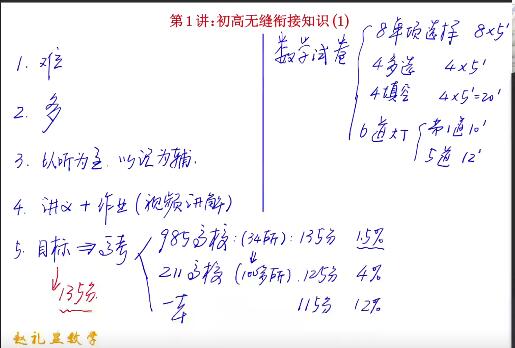 第1讲:初高无缝衔接知识(1)
1. 难
2. 多
3. 以听为主, 以记为辅.
4. 讲义 + 作业 (视频讲解)
5. 目标 ⇒ 高考
135分
985高校: (34所): 135分 1.5%
211高校 (100多所). 125分 4%
一本 115分 12%
数学试卷
8单项选择 8×5'
4多选 4×5'
4填空 4×5'=20'
6道大T
第1道10'
5道 12'
赵礼显数学